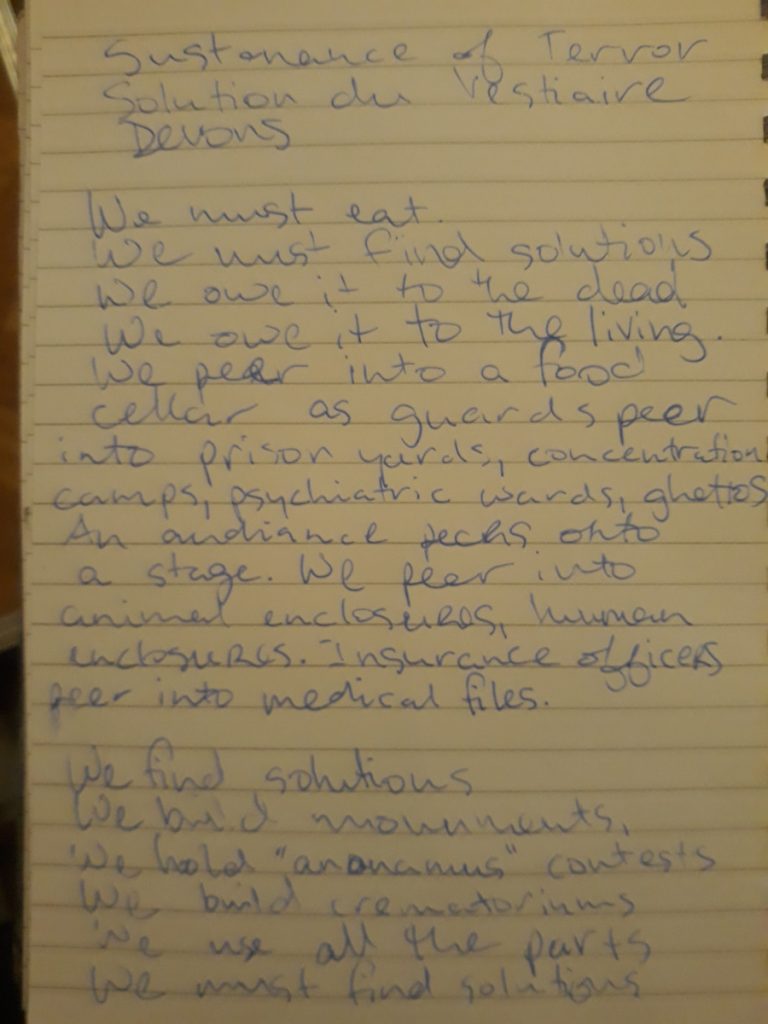 Sustenance of Terror
Solution du Vestiaire
Devons
We must eat.
We must find solutions
We owe it to the dead
We owe it to the living.
We peer into a food
cellar as guards peer
into prison yards, concentration
camps, psychiatric wards, ghettos
An audiance peers onto
a stage. We peer into
animal enclosures, human
enclosures. Insurance officers
peer into medical files.
We find solutions
We build monuments,
We hold "anonamus" contests
We build crematoriums
We use all the parts
We must find solutions